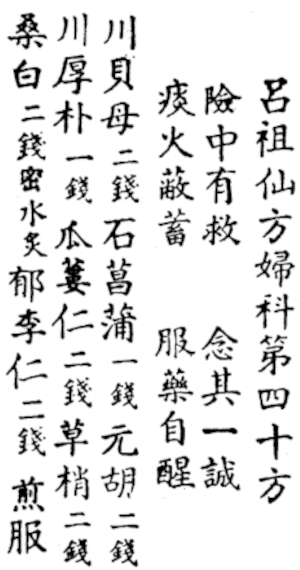 呂祖仙方婦科第四十方
險中有救　念其一誠
痰火蔽蓄　服藥自醒
川貝母二錢石菖蒲一錢元胡二錢
川厚朴一錢瓜蔞仁二錢草梢二錢
桑白二錢蜜水炙郁李仁二錢　煎服